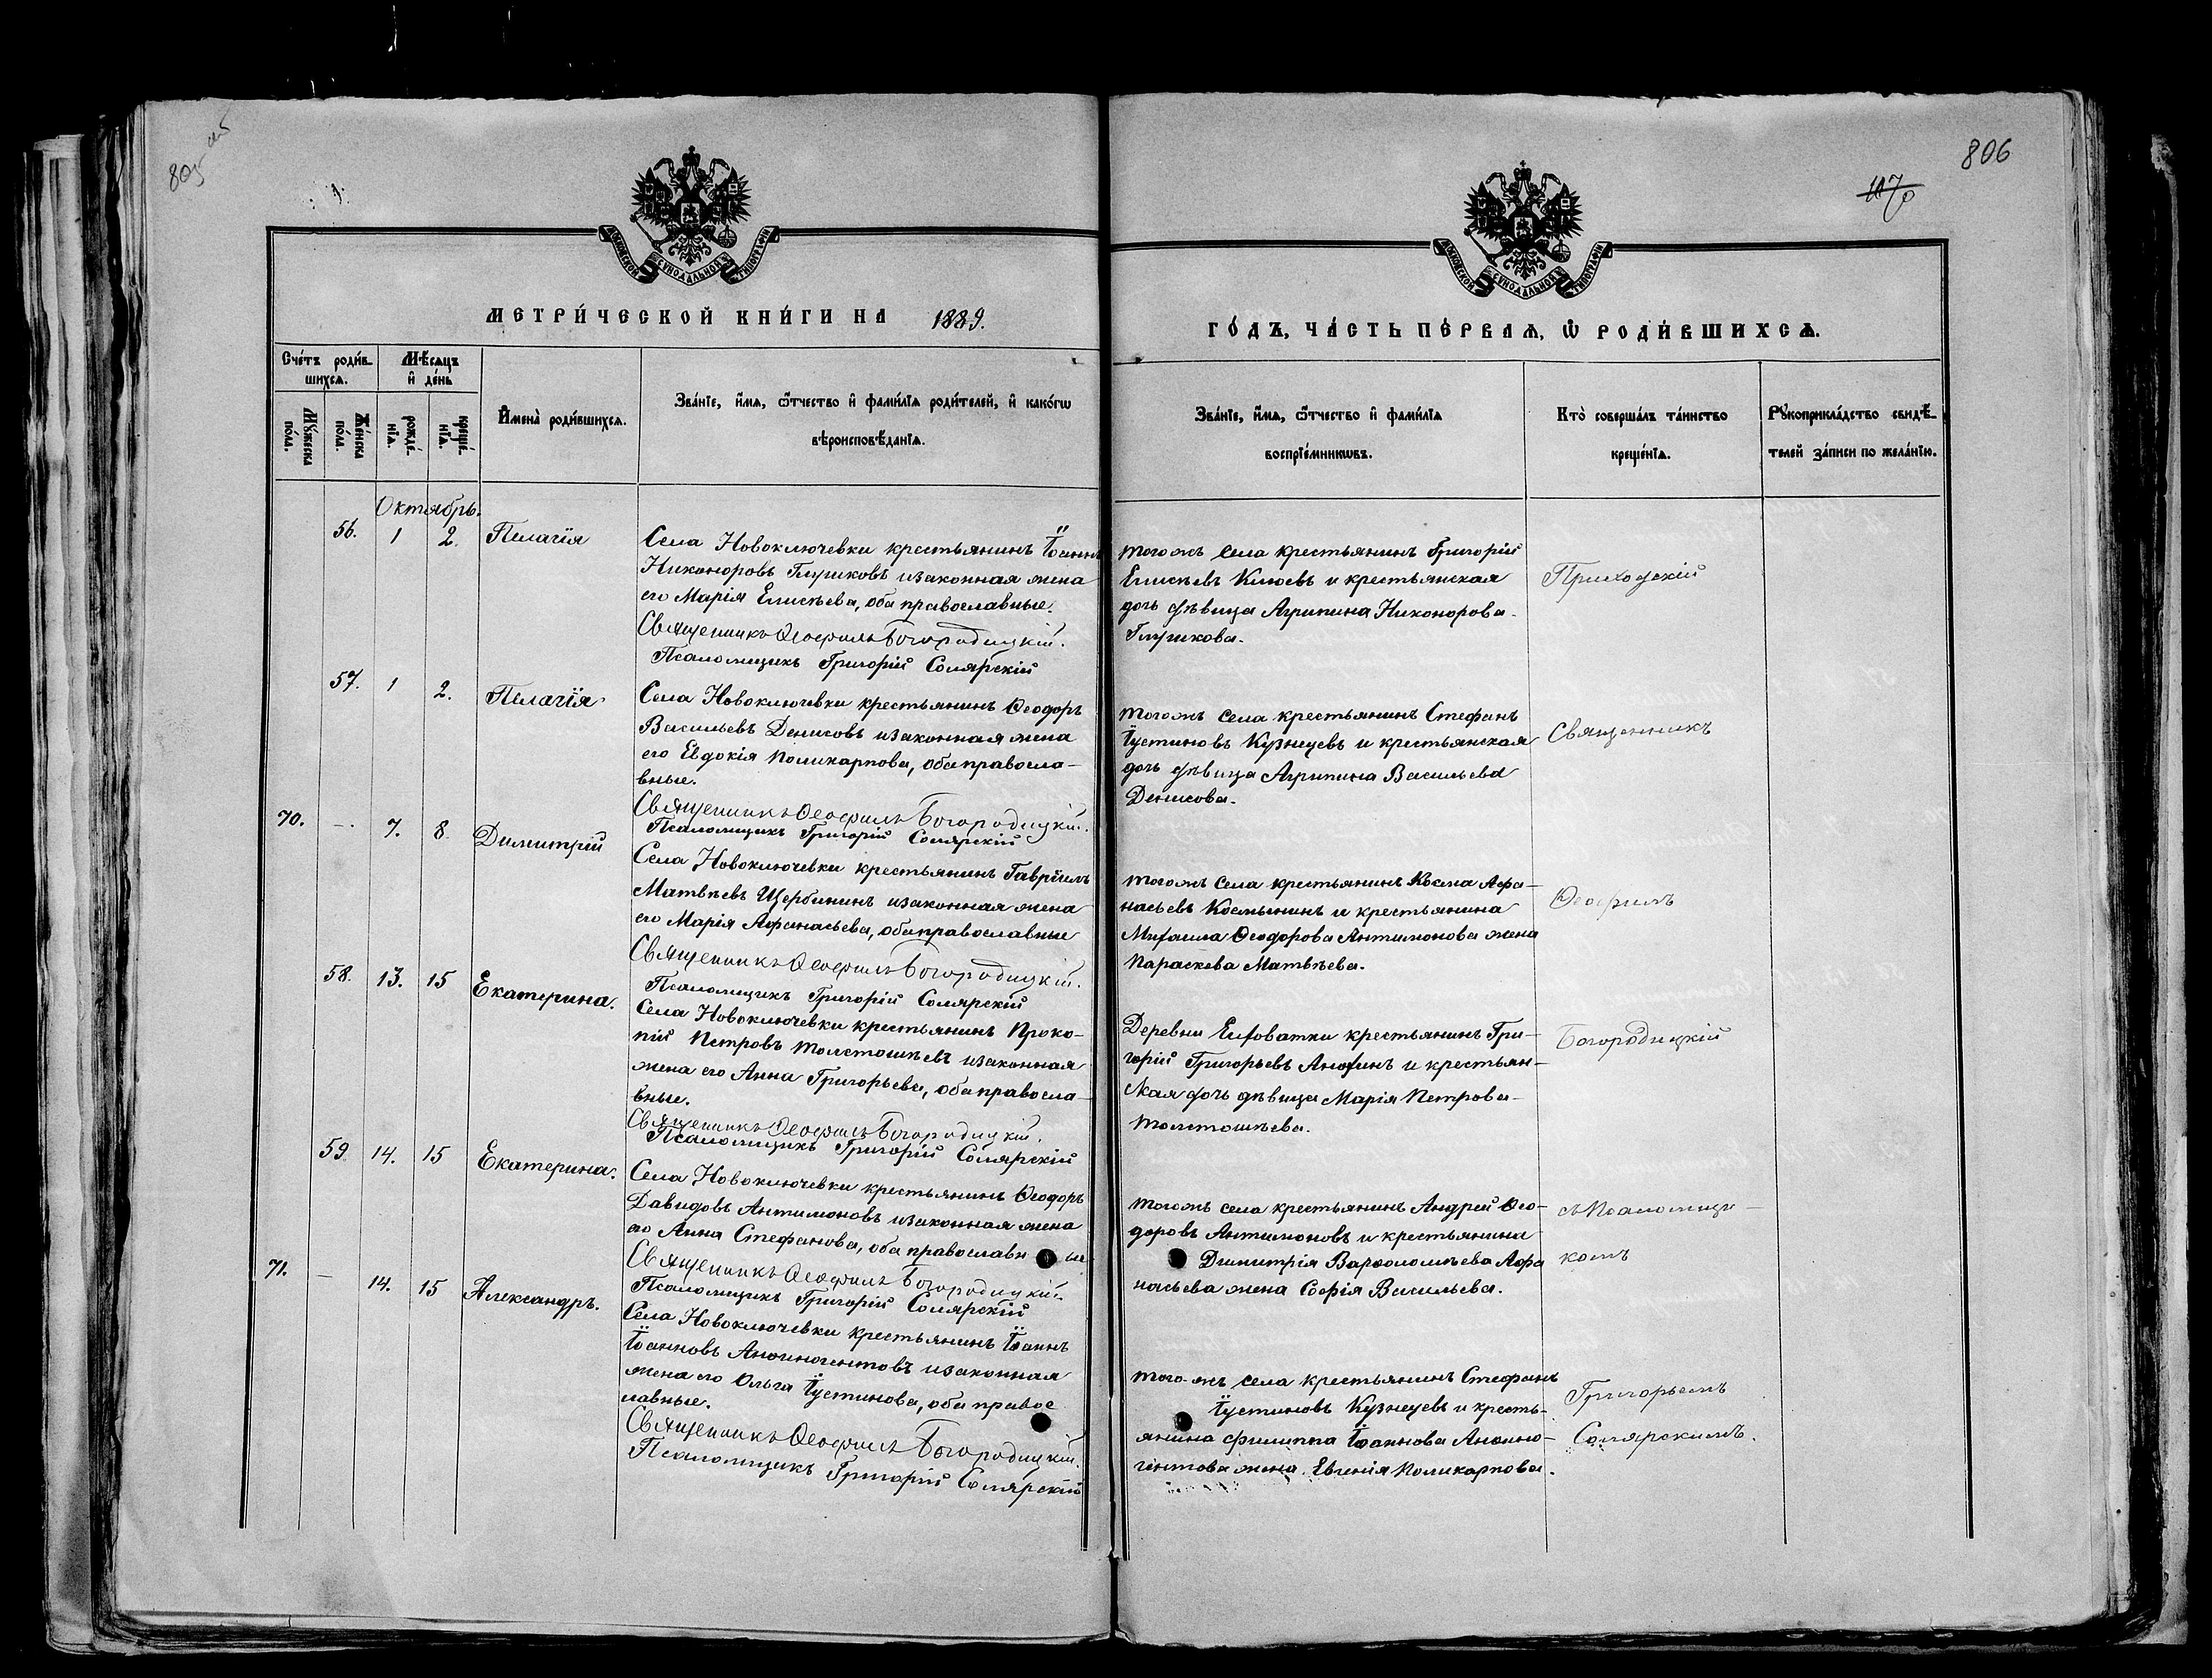 805 об
806
1070
МОСКОВСКОЙ СѴНОДАЛЬНОЙ ТИПОГРАФІИ
МОСКОВСКОЙ СѴНОДАЛЬНОЙ ТИПОГРАФІИ
МЕТРИ́ЧЕСКОЙ КНИ́ГИ НА 1889.
ГО́ДЪ, ЧА́СТЬ ПЕ́РВАѦ, Ѡ҆ РОДИ́ВШИХСѦ.
Сче́тъ роди́в-
шихсѧ.
Мѣ́сѧцъ
и҆ де́нь
Мꙋ́жеска
по́ла.
Же́нска
по́ла.
рожде́-
нїѧ.
креще́-
нїѧ.
И҆мена̀ роди́вшихсѧ.
Зва́нїе, и҆́мѧ, ѻ҆́тчество и҆ фами́лїѧ роди́телей, и҆ како́гѡ
вѣроисповѣ́данїѧ.
Зва́нїе, и҆́мѧ, ѻ҆́тчество и҆ фами́лїѧ
воспрїе́мникѡвъ.
Кто̀ соверша́лъ та́инство
креще́нїѧ.
Рꙋкоприкла́дство свидѣ́-
телей за́писи по жела́нїю.
Октябрь.
56. 1 2. Пелагія
Села Новоключевки крестьянинъ Іоаннъ
Никоноровъ Глушковъ и законная жена
его Марія Елисѣева, оба православные.
Священникъ Ѳеофилъ Богородицкій.
Псаломщикъ Григорій Солярскій
Тогожъ села крестьянинъ Григорій
Елисѣевъ Клюевъ и крестьянская
дочь дѣвица Агрипина Никонорова
Глушкова.
Приходскій
57. 1 2. Пелагія
Села Новоключевки крестьянинъ Ѳеодоръ
Васильевъ Денисовъ и законная жена
его Евдокія Поликарпова, оба правосла-
вные.
Священникъ Ѳеофилъ Богородицкій.
Псаломщикъ Григорій Солярскій
Тогожъ села крестьянинъ Стефанъ
Іустиновъ Кузнецевъ и крестьянская
дочь дѣвица Агрипина Васильева
Денисова.
Священникъ
70. - 7. 8. Димитрій
Села Новоключевки крестьянинъ Гавріилъ
Матвѣевъ Щербининъ и законная жена
его Марія Афанасьева, оба православные
Священникъ Ѳеофилъ Богородицкій.
Псаломщикъ Григорій Солярскій
Тогожъ села крестьянинъ Косма Афа-
насьевъ Космынинъ и крестьянина
Михаила Ѳеодорова Антимонова жена
Параскева Матвѣева.
Ѳеофилъ
58. 13. 15 Екатерина.
Села Новоключевки крестьянинъ Проко-
пій Петровъ Толстошѣевъ и законная
жена его Анна Григорьева, оба правосла-
вные.
Священникъ Ѳеофилъ Богородицкій.
Псаломщикъ Григорій Солярскій
Деревни Елховатки крестьянинъ Гри-
горій Григорьевъ Анохинъ и крестьян-
ская дочь дѣвица Марія Петрова
Толстошѣева.
Богородицкій
59 14. 15 Екатерина.
Села Новоключевки крестьянинъ Ѳеодоръ
Давидовъ Антимоновъ и законная жена
его Анна Стефанова, оба православные
Священникъ Ѳеофилъ Богородицкій.
Псаломщикъ Григорій Солярскій
Тогожъ села крестьянинъ Андрей Ѳео-
доровъ Антимоновъ и крестьянина
Димитрія Варѳоломѣева Афа
насьева жена Софія Васильева.
съ Псаломщи-
комъ
71. - 14. 15 Александръ.
Села Новоключевки крестьянинъ Іоаннъ
Іоанновъ Анѳиногентовъ и законная
жена его Ольга Іустинова, оба правос
лавные.
Священникъ Ѳеофилъ Богородицкій.
Псаломщикъ Григорій Солярскій
Того-жъ села крестьянинъ Стефанъ
Іустиновъ Кузнецевъ и кресть-
янина Филиппа Іоаннова Анѳино-
гентова жена Евгенія Поликарпова.
Григорьемъ
Солярскимъ.